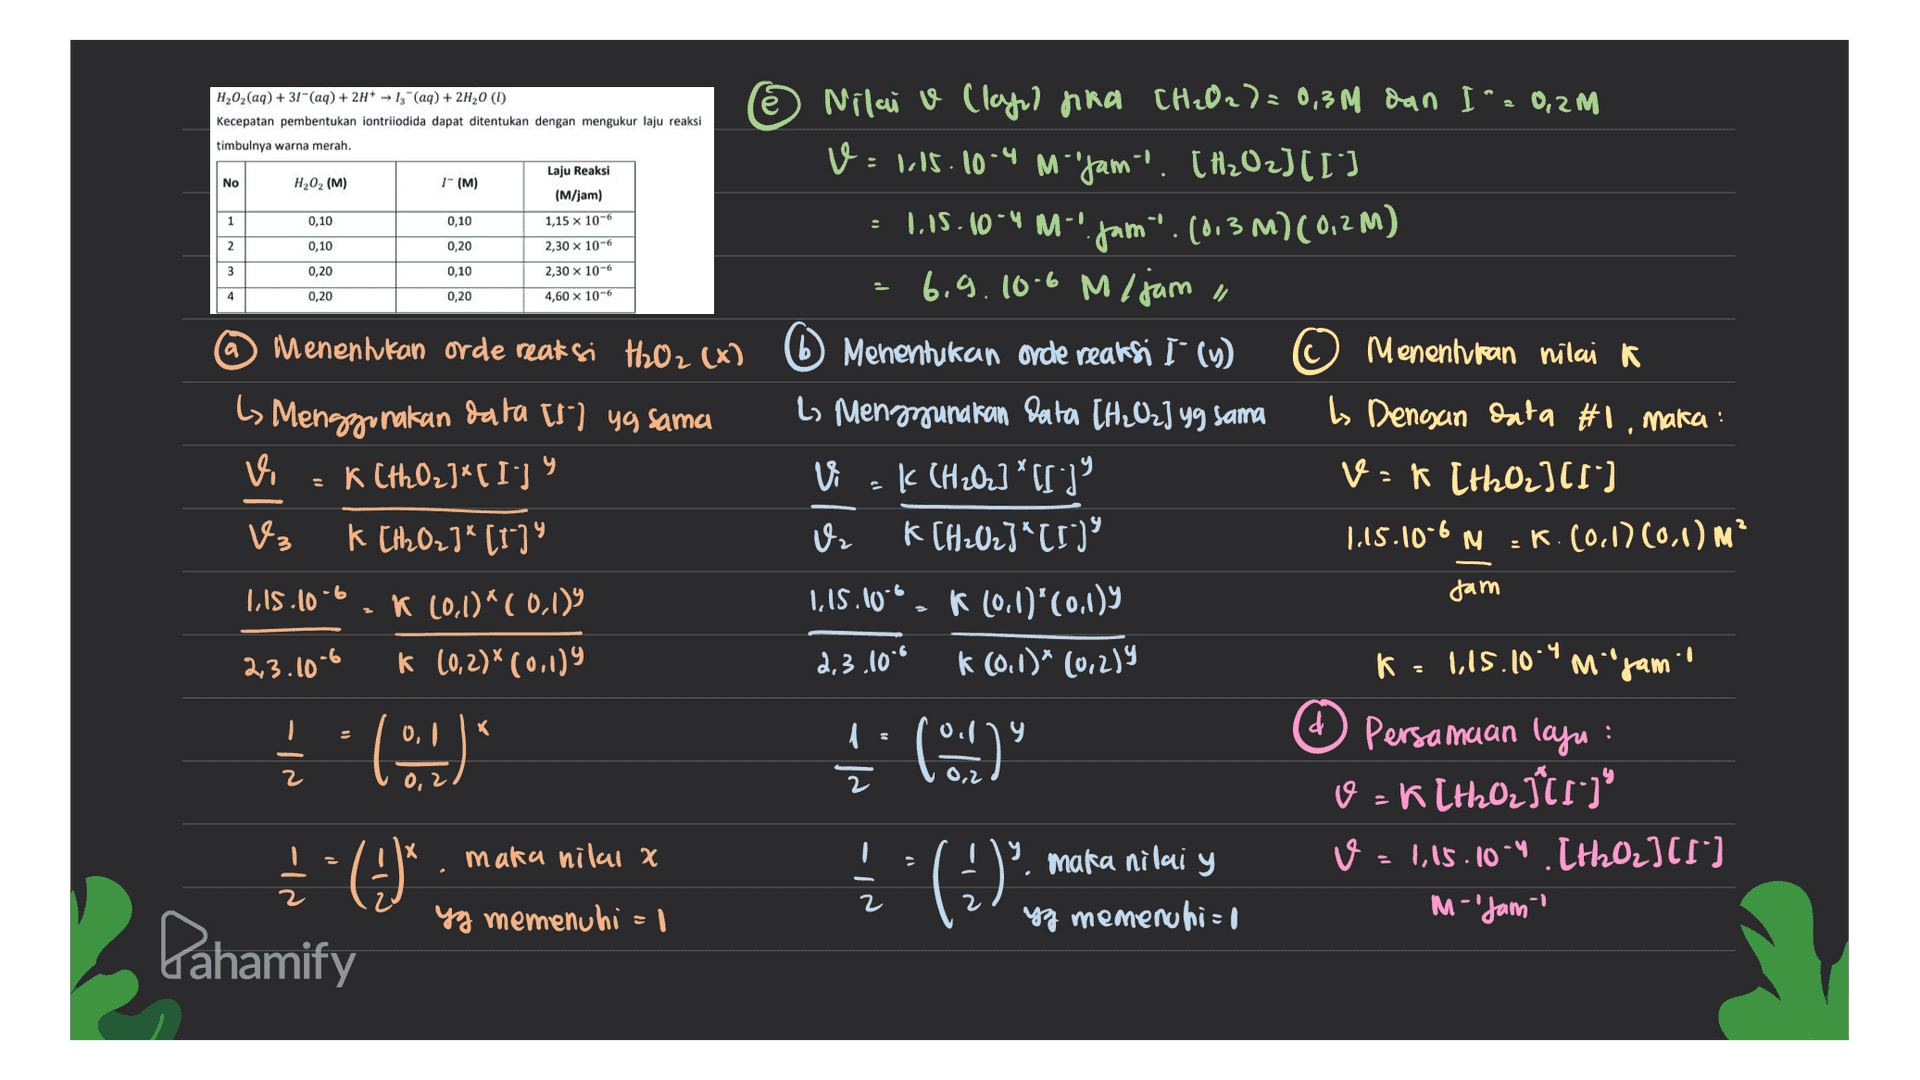 H₂O₂(aq) + 3I⁻(aq) + 2H⁺ → I₃⁻(aq) + 2H₂O (l)
Kecepatan pembentukan iontriiodida dapat ditentukan dengan mengukur laju reaksi
timbulnya warna merah.
No H₂O₂ (M) I⁻ (M) Laju Reaksi (M/jam)
1 0,10 0,10 1,15 × 10⁻⁶
2 0,10 0,20 2,30 × 10⁻⁶
3 0,20 0,10 2,30 × 10⁻⁶
4 0,20 0,20 4,60 × 10⁻⁶
(e) Nilai v (laju) jika [H₂O₂] = 0,3 M dan I⁻ = 0,2 M
v = 1,15.10⁻⁴ M⁻¹jam⁻¹. [H₂O₂][I⁻]
= 1.15.10⁻⁴ M⁻¹.jam⁻¹. (0,3 M)(0,2 M)
= 6,9.10⁻⁶ M/jam //
(a) Menentukan orde reaksi H₂O₂ (x)
↳ Menggunakan data [I⁻] yg sama
v₁/v₃ = K [H₂O₂]ˣ[I⁻]ʸ / K [H₂O₂]ˣ[I⁻]ʸ
1,15.10⁻⁶/2,3.10⁻⁶ = K (0,1)ˣ(0,1)ʸ / K (0,2)ˣ(0,1)ʸ
1/2 = (0,1/0,2)ˣ
1/2 = (1/2)ˣ. maka nilai x
yg memenuhi = 1
(b) Menentukan orde reaksi I⁻ (y)
↳ Menggunakan data [H₂O₂] yg sama
v₁/v₂ = K [H₂O₂]ˣ[I⁻]ʸ / K [H₂O₂]ˣ[I⁻]ʸ
1,15.10⁻⁶/2,3.10⁻⁶ = K (0,1)ˣ(0,1)ʸ / K (0,1)ˣ(0,2)ʸ
1/2 = (0,1/0,2)ʸ
1/2 = (1/2)ʸ. maka nilai y
yg memenuhi = 1
(c) Menentukan nilai K
↳ Dengan data #1, maka :
v = K [H₂O₂][I⁻]
1.15.10⁻⁶ M/jam = K. (0,1)(0,1) M²
K = 1,15.10⁻⁴ M⁻¹jam⁻¹
(d) Persamaan laju :
v = K [H₂O₂]ˣ[I⁻]ʸ
v = 1,15.10⁻⁴. [H₂O₂][I⁻]
M⁻¹jam⁻¹
Pahamify